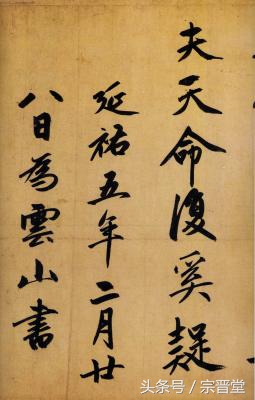 夫天命復奚疑
延祐五年二月廿
八日為雲山書
头条号／宗晋堂